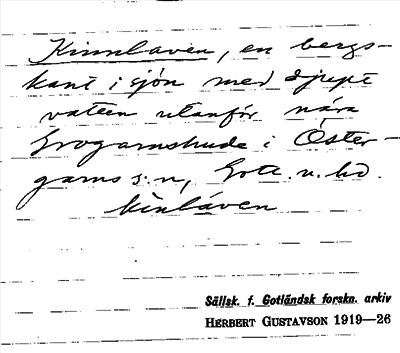 Kinnlaven, en bergs-
kant i sjön med djupt
vatten utanför nära
Grogarnshude i Öster-
garns s:n, Gotl. n. hd.
kinláven
Sällsk. f. Gotländsk forskn. arkiv
HERBERT GUSTAVSON 1919—26